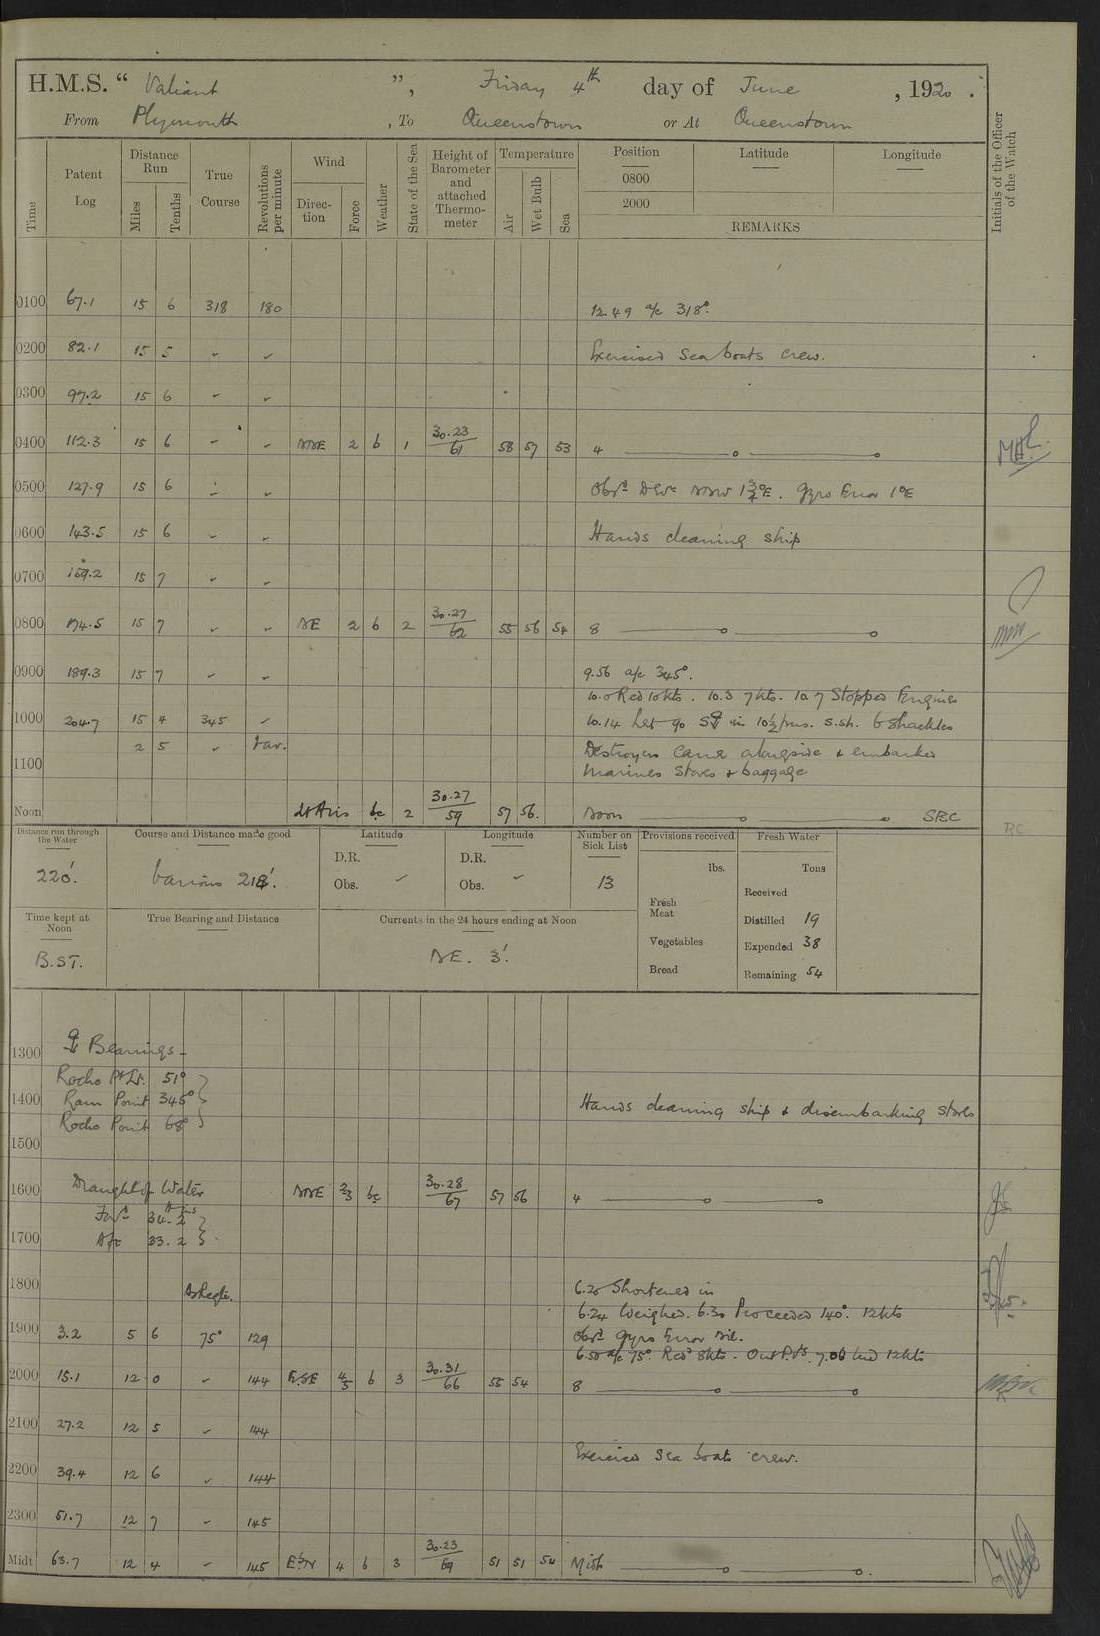 H.M.S. “ Valiant ”, Friday 4th day of June , 1920 .
From Plymouth , To Queenstown or At Queenstown
Time Patent Log Distance Run Miles Tenths True Course Revolutions per minute Wind Direction Force Weather State of the Sea Height of Barometer and attached Thermometer Temperature Air Wet Bulb Sea Position Latitude Longitude
0800
2000
REMARKS
Initials of the Officer of the Watch
0100 67.1 15 6 318 180 12.49 a/c 318°.
0200 82.1 15 5 " " Exercised Sea boats crew.
0300 97.2 15 6 " "
0400 112.3 15 6 " " NNE 2 b 1 30.23/61 58 57 53 4
0500 127.9 15 6 " " Obsd Devn NNW 1¾°E. Gyro Error 1°E
0600 143.5 15 6 " " Hands cleaning ship
0700 159.2 15 7 " "
0800 174.5 15 7 " " NE 2 b 2 30.27/62 55 56 54 8
0900 189.3 15 7 " " 9.56 a/c 345°.
10.0 Red 10kts. 10.3 7kts. 10.7 Stopped Engines
1000 204.7 15 4 345 " 10.14 Let go in 10½ fms. S.sh. 6 Shackles
2 5 " Var. Destroyers came alongside & embarked
1100 Marines Stores & baggage
Noon Lt Airs bc 2 30.27/59 57 56. Noon SBC
Distance run through the Water 220'.
Course and Distance made good Various 218'.
Latitude D.R. Obs. "
Longitude D.R. Obs. "
Number on Sick List 13
Provisions received lbs. Fresh Meat Vegetables Bread
Fresh Water Tons
Received
Distilled 19
Expended 38
Remaining 54
Time kept at Noon B.S.T.
True Bearing and Distance
Currents in the 24 hours ending at Noon NE. 3'.
1300 Bearings -
Roche Pt Lt. 51°
1400 Ram Point 345° Hands cleaning ship & disembarking stores
Roche Point 68°
1500
1600 Draught of Water NNE 2/3 bc 30.28/67 57 56 4
Ford 34.2
1700 Aft 33.2
1800 6.20 Shortened in
6.24 Weighed. 6.30 Proceeded 140°. 12kts
1900 3.2 5 6 75° 129 Obsd Gyro Error Nil.
6.50 a/c 75°. Red 8kts. Out P.Vs. 7.00 Incd 12kts
2000 15.1 12 0 " 144 ESE 4/5 b 3 30.31/66 55 54 8
2100 27.2 12 5 " 144
Exercised Sea boats crew.
2200 39.4 12 6 " 144
2300 51.7 12 7 " 145
Midt 63.7 12 4 " 145 E'N 4 b 3 30.23/69 51 51 54 Midt